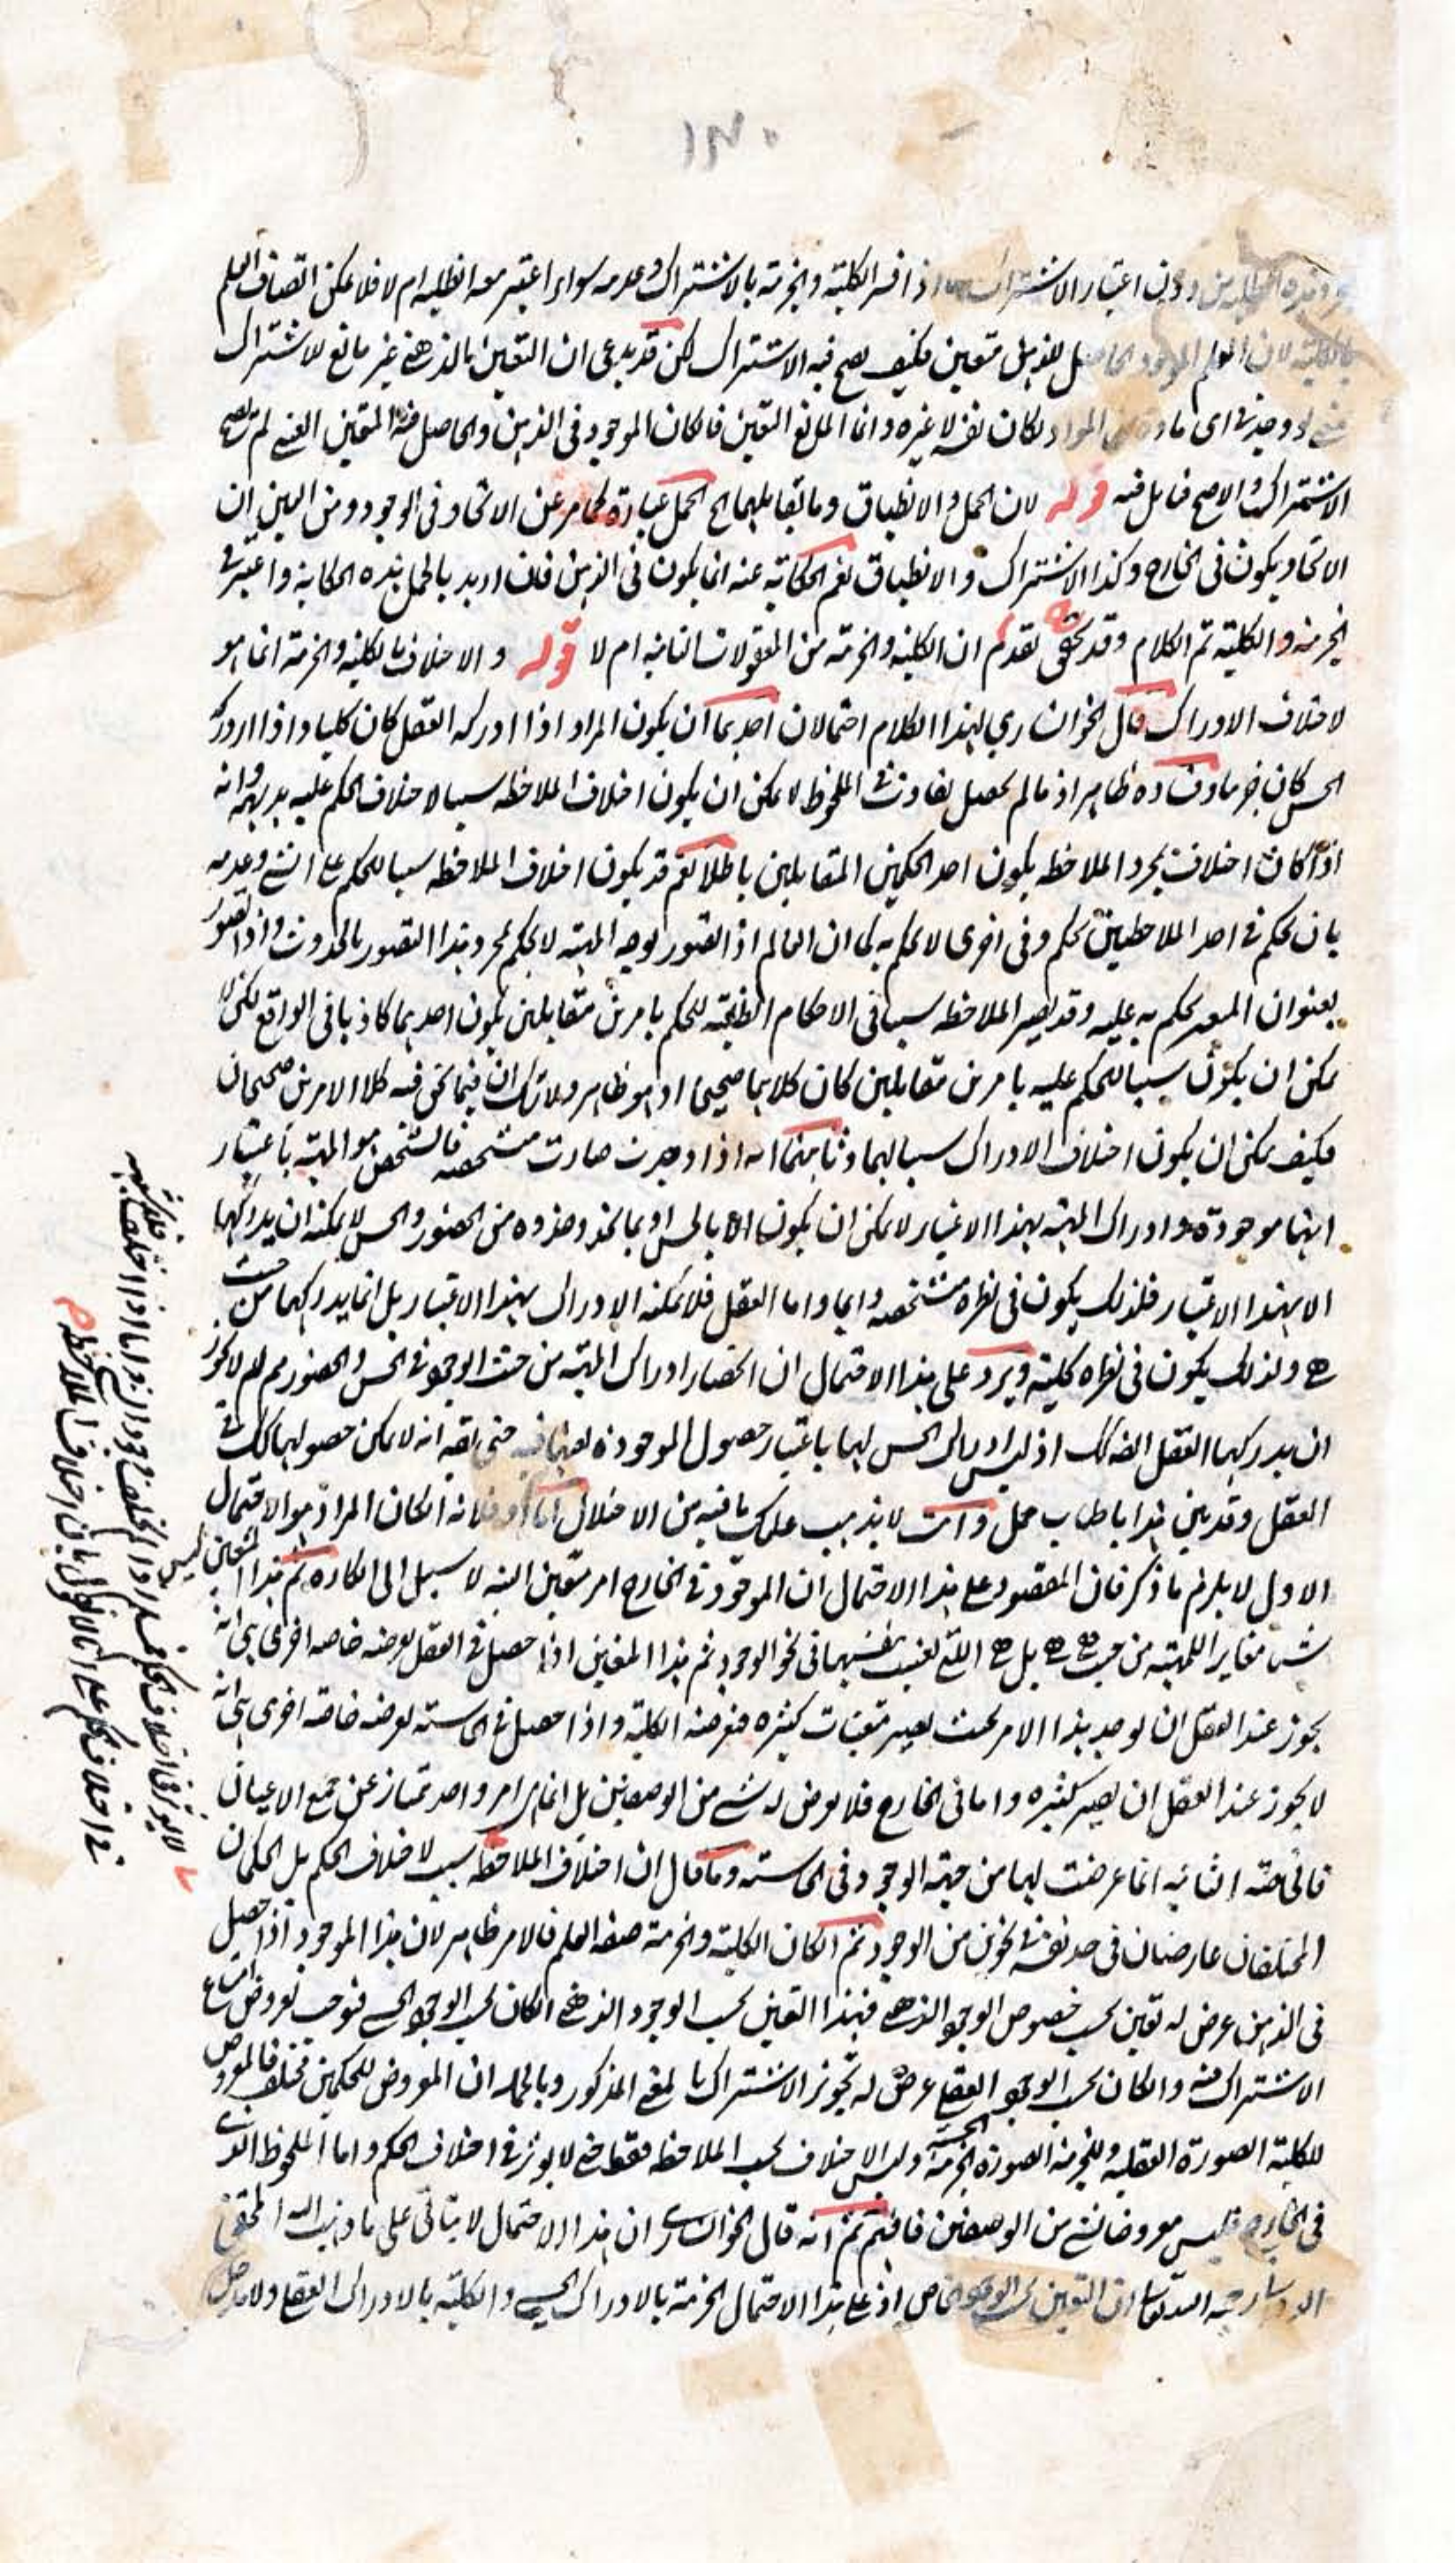 ١٣٠
اعتبار الاشتراك اذا فسر الكلية والجزئية بالاشتراك وعدمه سواء اعتبر معه الظلية ام لا فلا يمكن اتصاف العلم
بالكلية لان العلم الموجود متعين فكيف يصح فيه الاشتراك لكن قد يدعى ان التعين الذهنى غير مانع للاشتراك
لو وجد فى اى مادة من المواد لكان نفسه لا غيره وانما المانع التعين فان كان الموجود فى الذهن والحاصل فيه المتعين لم يصح
الاشتراك والا صح فتأمل فيه قوله لان الحمل والانطباق وما يقابلهما الحمل عبارة كما مر عن الاتحاد فى الوجود ومن البين ان
الاتحاد يكون فى الخارج وكذا الاشتراك والانطباق نعم الحكاية عنه انما يكون فى الذهن فان اريد بالحمل هذه الحكاية واعتبر فى
الجزئية والكلية تم الكلام وقد تقدم ان الكلية والجزئية من المعقولات الثانية ام لا قوله والاختلاف بالكلية والجزئية انما هو
لاختلاف الادراك قال الخوانسارى لهذا الكلام احتمالان احدهما ان يكون المراد اذا ادركه العقل كان كليا واذا ادركه
الحس كان جزئيا وفساده ظاهر اذ ما لم يحصل تفاوت فى الملحوظ لا يمكن ان يكون اختلاف الملاحظة سببا لاختلاف الحكم عليه بديهة وانه
اذا كان اختلاف بمجرد الملاحظة يكون احد الحكمين المتقابلين باطلا نعم قد يكون اختلاف الملاحظة سببا للحكم على الشئ وعدمه
بان يحكم فى احد الملاحظتين بحكم وفى اخرى لا يحكم به كما ان العالم اذا تصور بوجه المهية لا يحكم بمجرد هذا التصور بالحدوث واذا تصور
بعنوان المتغير يحكم به عليه وقد يصير الملاحظة سببا فى الاحكام الظنية للحكم بامرين متقابلين يكون احدهما كاذبا فى الواقع لكن لا
يمكن ان يكون سببا للحكم عليه بامرين متقابلين كان كلاهما صحيحا اذ هو ظاهر ولا شك ان فيما نحن فيه كلا الامرين صحيحان
فكيف يمكن ان يكون اختلاف الادراك سببا لهما وثانيهما انه اذا وجدت صارت متشخصة فالتشخص هو المهية باعتبار
انها موجودة وادراك المهية بهذا الاعتبار لا يمكن ان يكون الا بالحس او بما يحذو حذوه من الحضور والحس لا يمكنه ان يدركها
الا بهذا الاعتبار فلذلك يكون فى نظره متشخصة دايما واما العقل فلا يمكنه الادراك بهذا الاعتبار بل انما يدركها من حيث
هى ولذلك يكون فى نظره كلية ويرد على هذا الاحتمال ان انحصار ادراك المهية من حيث الوجود فى الحس والحضور مم لم لا يجوز
ان يدركها العقل ايضا كك اذ ليس ادراك الحس لها باعتبار حصول الموجودة بعينها فيه حتى يقه انه لا يمكن حصولها كك فى
العقل وقد بين هذا باطناب ممل وانت لا يذهب عليك ما فيه من الاختلال اما اولا فلانه ان كان المراد هو الاحتمال
الاول لا يلزم ما ذكر فان المقصود على هذا الاحتمال ان الموجود فى الخارج امر متعين البتة لا سبيل الى انكاره ثم هذا المتعين ليس
شيئا مغايرا للمهية من حيث هى هى بل هى التى تعينت بنفسها فى نحو الوجود ثم هذا المتعين اذا حصل فى العقل يعرضه خاصة اخرى هى انه
يجوز عند العقل ان يوجد هذا الامر بحيث يصير متعينات كثيرة فتعرضه الكلية واذا حصل فى الحاسة يعرضه خاصة اخرى هى انه
لا يجوز عند العقل ان يصير كثيرة واما فى الخارج فلا يعرض له شئ من الوصفين بل انما هو امر واحد ممتاز عن جميع الاعيان
فالخاصة الثانية انما عرضت لها من جهة الوجود فى الحاسة وما قال ان اختلاف الملاحظة سبب لاختلاف الحكم بل الحكمان
المختلفان عارضان فى حد نفسه فى نحوين من الوجود ثم ان كان الكلية والجزئية صفة العلم فالامر ظاهر لان هذا الموجود اذا حصل
فى الذهن عرض له تعين بحسب خصوص الوجود الذهنى فهذا التعين بحسب الوجود الذهنى ان كان بحسب الوجود الحسى فيوجب لعروض امتناع
الاشتراك فيه وان كان بحسب الوجود العقلى عرض له تجويز الاشتراك بالمعنى المذكور وبالجملة ان المعروض للحكمين مختلف فالمعروض
للكلية الصورة العقلية وللجزئية الصورة الحسية وليس الاختلاف بحسب الملاحظة فقط حتى لا يؤثر فى اختلاف الحكم واما الملحوظ الذى
فى الخارج فليس معروضا لشئ من الوصفين فافهم ثم انه قال الخوانسارى ان هذا الاحتمال لا يتأتى على ما ذهب اليه المحقق
ان التعين الوجود الخاص اذ على هذا الاحتمال الجزئية بالادراك الحسى والكلية بالادراك العقلى ولا مدخل